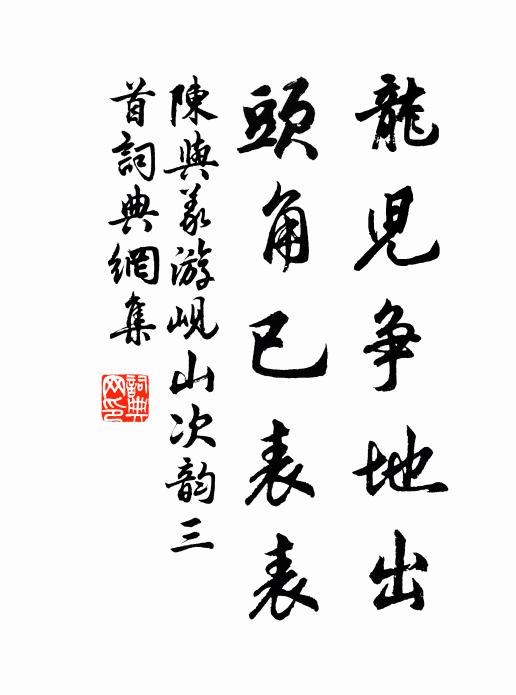 龍兒争地出
頭角已表表
陳與義游峴山次韵三
首詞典網集
詞典
网印